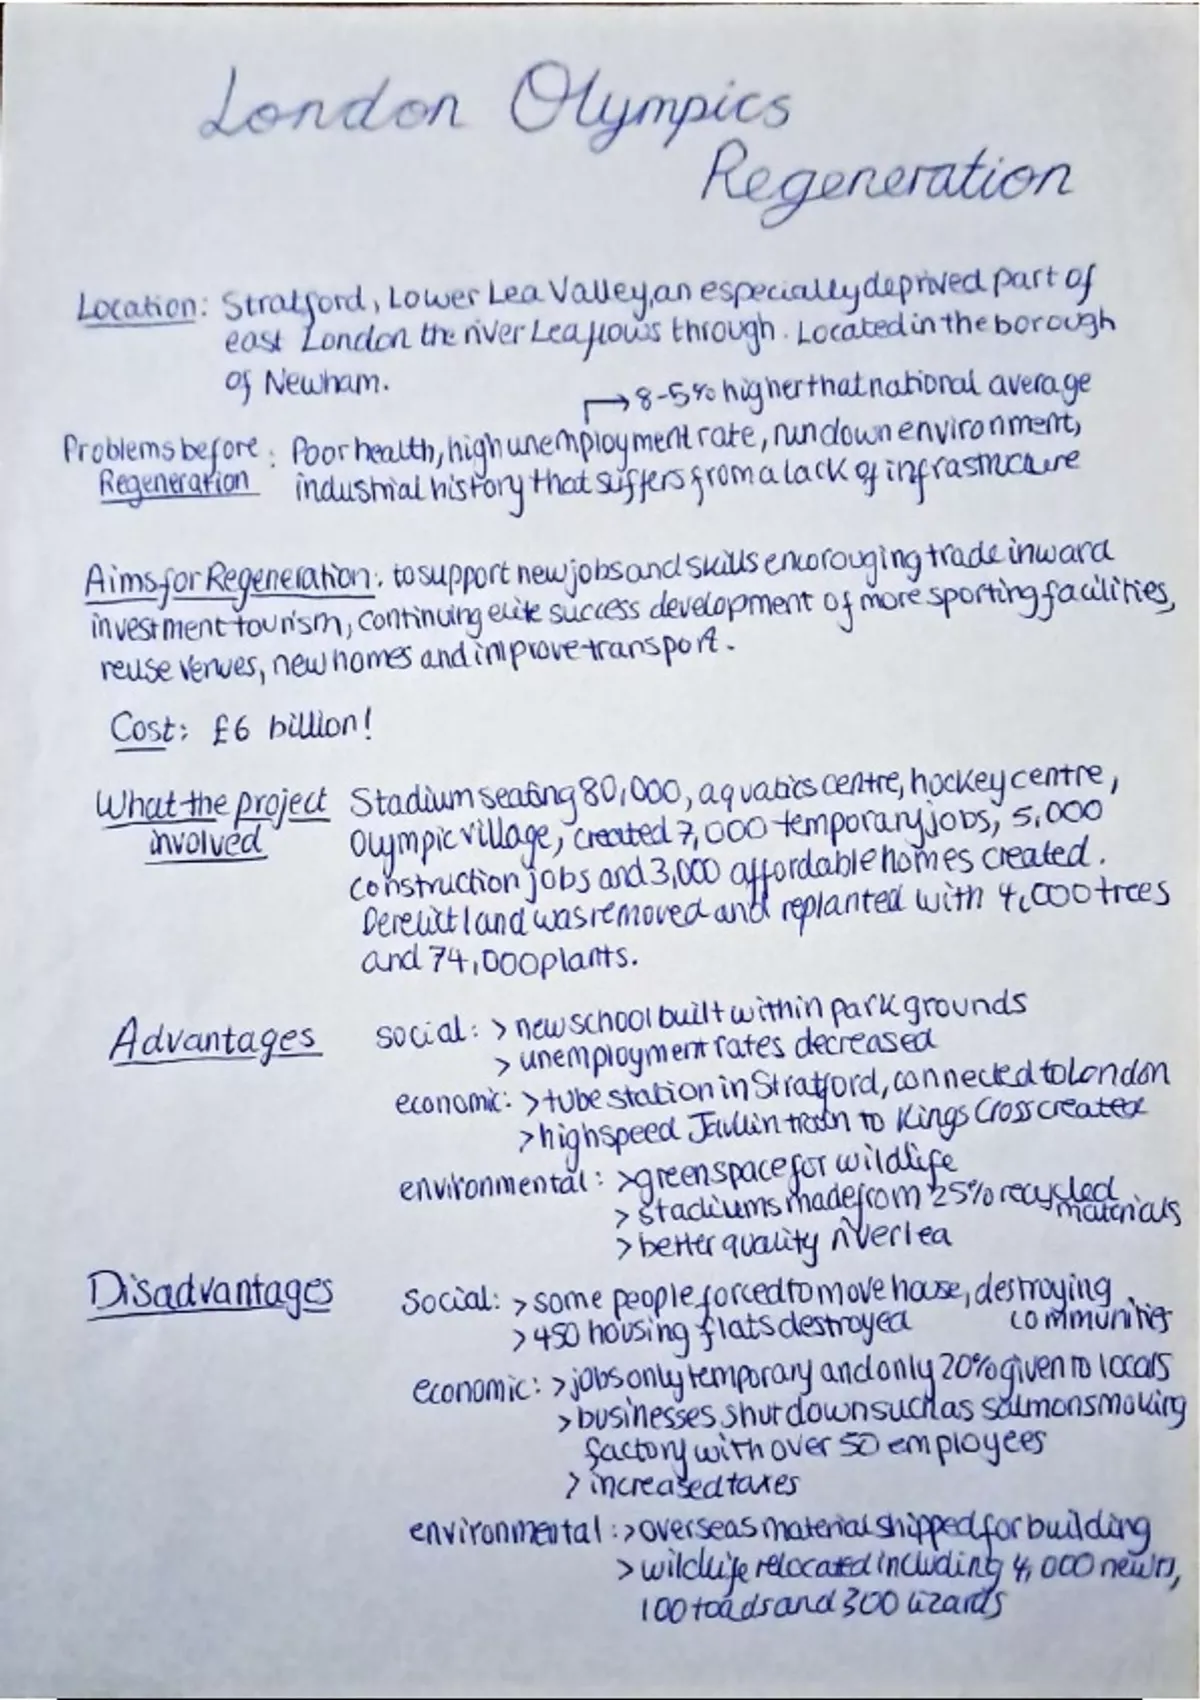 London Olympics
Regeneration
Location: Stratford, Lower Lea Valley, an especially deprived part of
east London the river Lea flows through. Located in the borough
of Newham.
→ 8-5% higher that national average
Problems before Regeneration: Poor health, high unemployment rate, run down environment,
industrial history that suffers from a lack of infrastructure
Aims for Regeneration: to support new jobs and skills encorouging trade inward
investment tourism, continuing elite success development of more sporting facilities,
reuse venues, new homes and improve transport.
Cost: £6 billion!
What the project involved Stadium seating 80,000, aquatics centre, hockey centre,
Olympic village, created 7,000 temporary jobs, 5,000
construction jobs and 3,000 affordable homes created.
Derelict land was removed and replanted with 4,000 trees
and 74,000 plants.
Advantages social: > new school built within park grounds
> unemployment rates decreased
economic: > tube station in Stratford, connected to London
> high speed Javlin train to Kings Cross created
environmental: > green space for wildlife
> stadiums made from 25% recycled materials
> better quality river lea
Disadvantages Social: > some people forced to move house, destroying communities
> 450 housing flats destroyed
economic: > jobs only temporary and only 20% given to locals
> businesses shut down such as salmon smoking
factory with over 50 employees
> increased taxes
environmental: > overseas material shipped for building
> wildlife relocated including 4,000 newts,
100 toads and 300 lizards